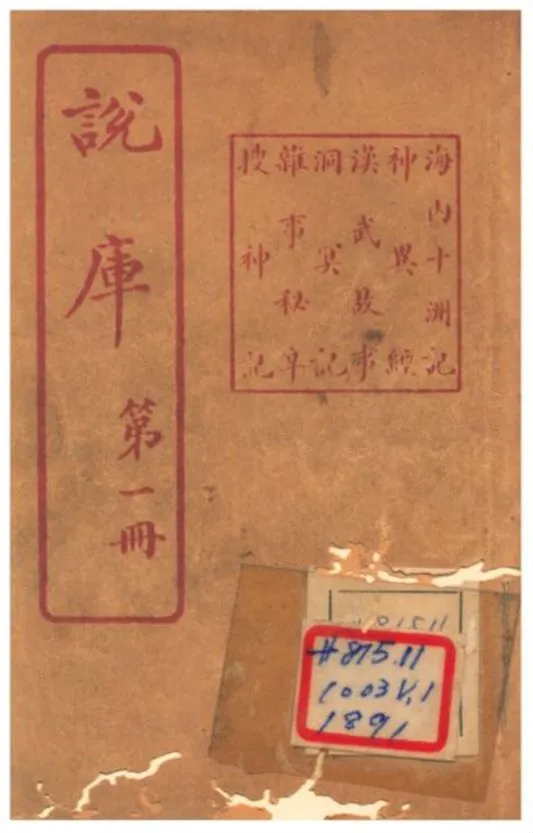 說庫 第一冊
海內十洲記
神異經
漢武故事
洞冥記
雜事秘辛
搜神記
81511
#815.11
1003 V.1
1891